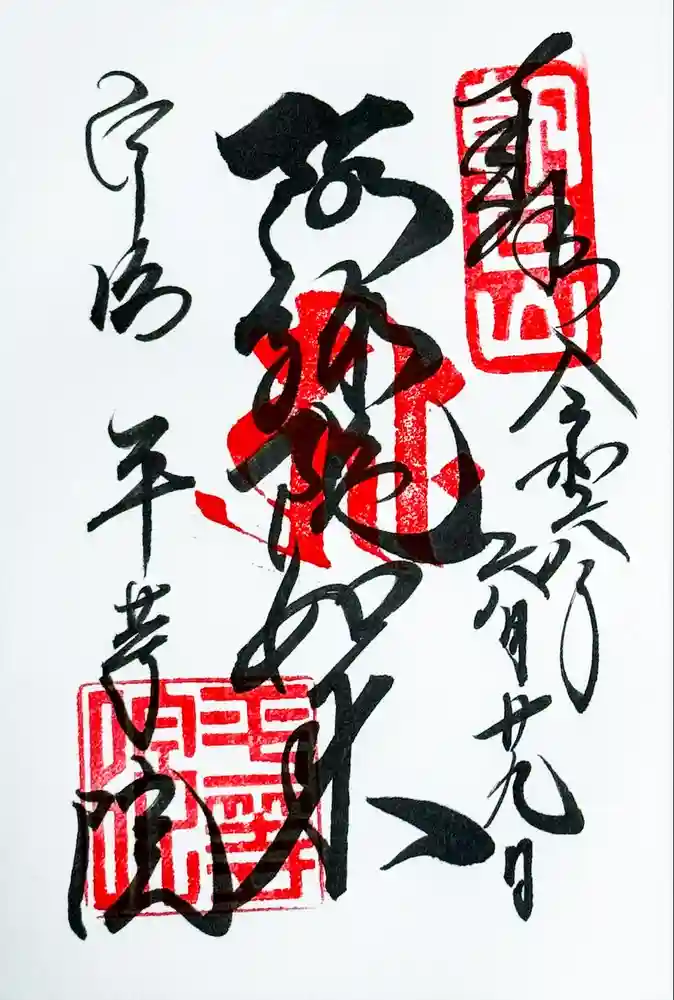 奉拝
令和六年
月廿九日
朝日山
阿弥陀如来
宇治 平等院
平等院